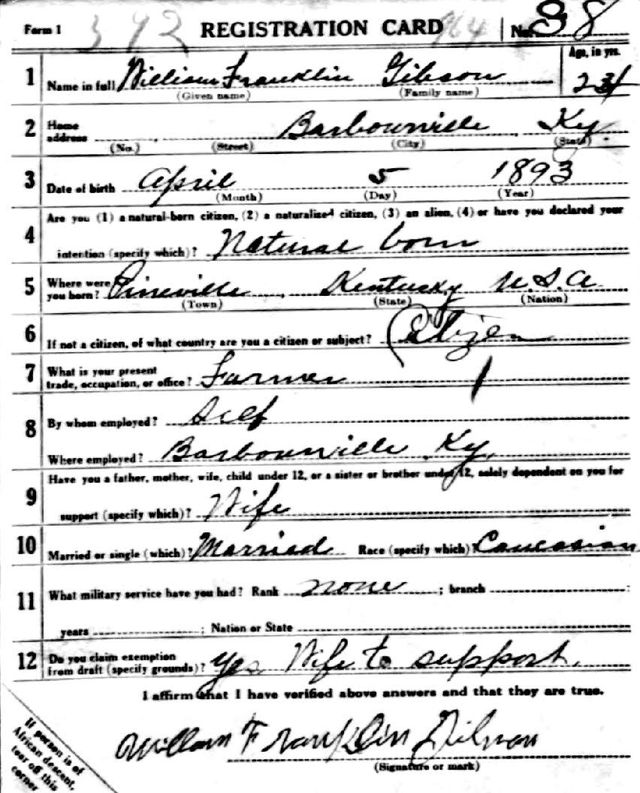 Form 1 392 REGISTRATION CARD 964 No. 38
1 Name in full William Franklin Gibson Age, in yrs. 24
(Given name) (Family name)
2 Home address Barbourville, Ky.
(No.) (Street) (City) (State)
3 Date of birth April 5 1893
(Month) (Day) (Year)
4 Are you (1) a natural-born citizen, (2) a naturalized citizen, (3) an alien, (4) or have you declared your
intention (specify which)? Natural born
5 Where were you born? Pineville, Kentucky U.S.A
(Town) (State) (Nation)
6 If not a citizen, of what country are you a citizen or subject? Citizen
7 What is your present trade, occupation, or office? Farmer
8 By whom employed? Self
Where employed? Barbourville Ky,
9 Have you a father, mother, wife, child under 12, or a sister or brother under 12, solely dependent on you for
support (specify which)? Wife
10 Married or single (which)? Married Race (specify which)? Caucasian
11 What military service have you had? Rank none ; branch
years ; Nation or State
12 Do you claim exemption from draft (specify grounds)? Yes, Wife to support.
I affirm that I have verified above answers and that they are true.
William Franklin Gibson
(Signature or mark)
If person is of
African descent,
tear off this
corner